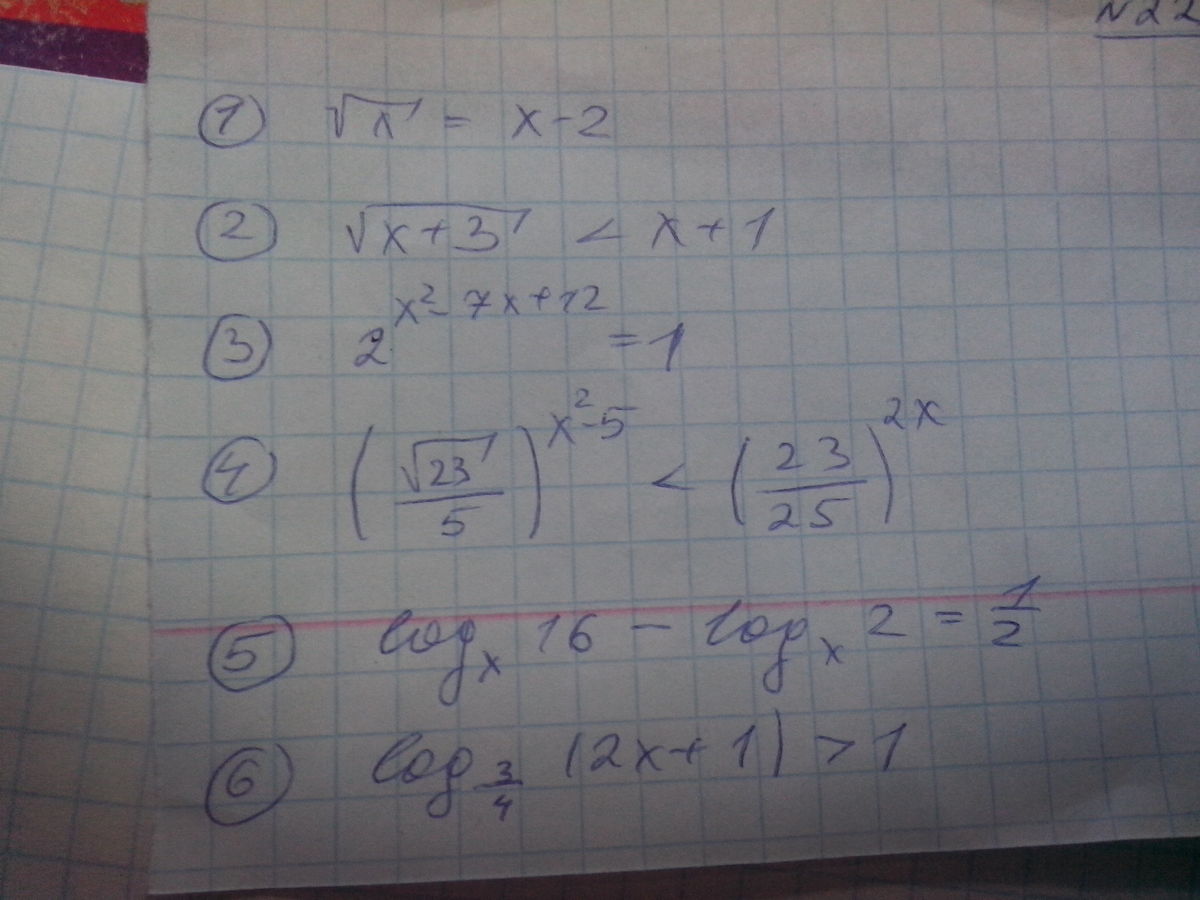 №22
① √x = x-2
② √(x+3) < x+1
③ 2^(x²-7x+12) = 1
④ (√23/5)^(x²-5) < (23/25)^(2x)
⑤ log_x 16 - log_x 2 = 1/2
⑥ log_(3/4) (2x+1) > 1